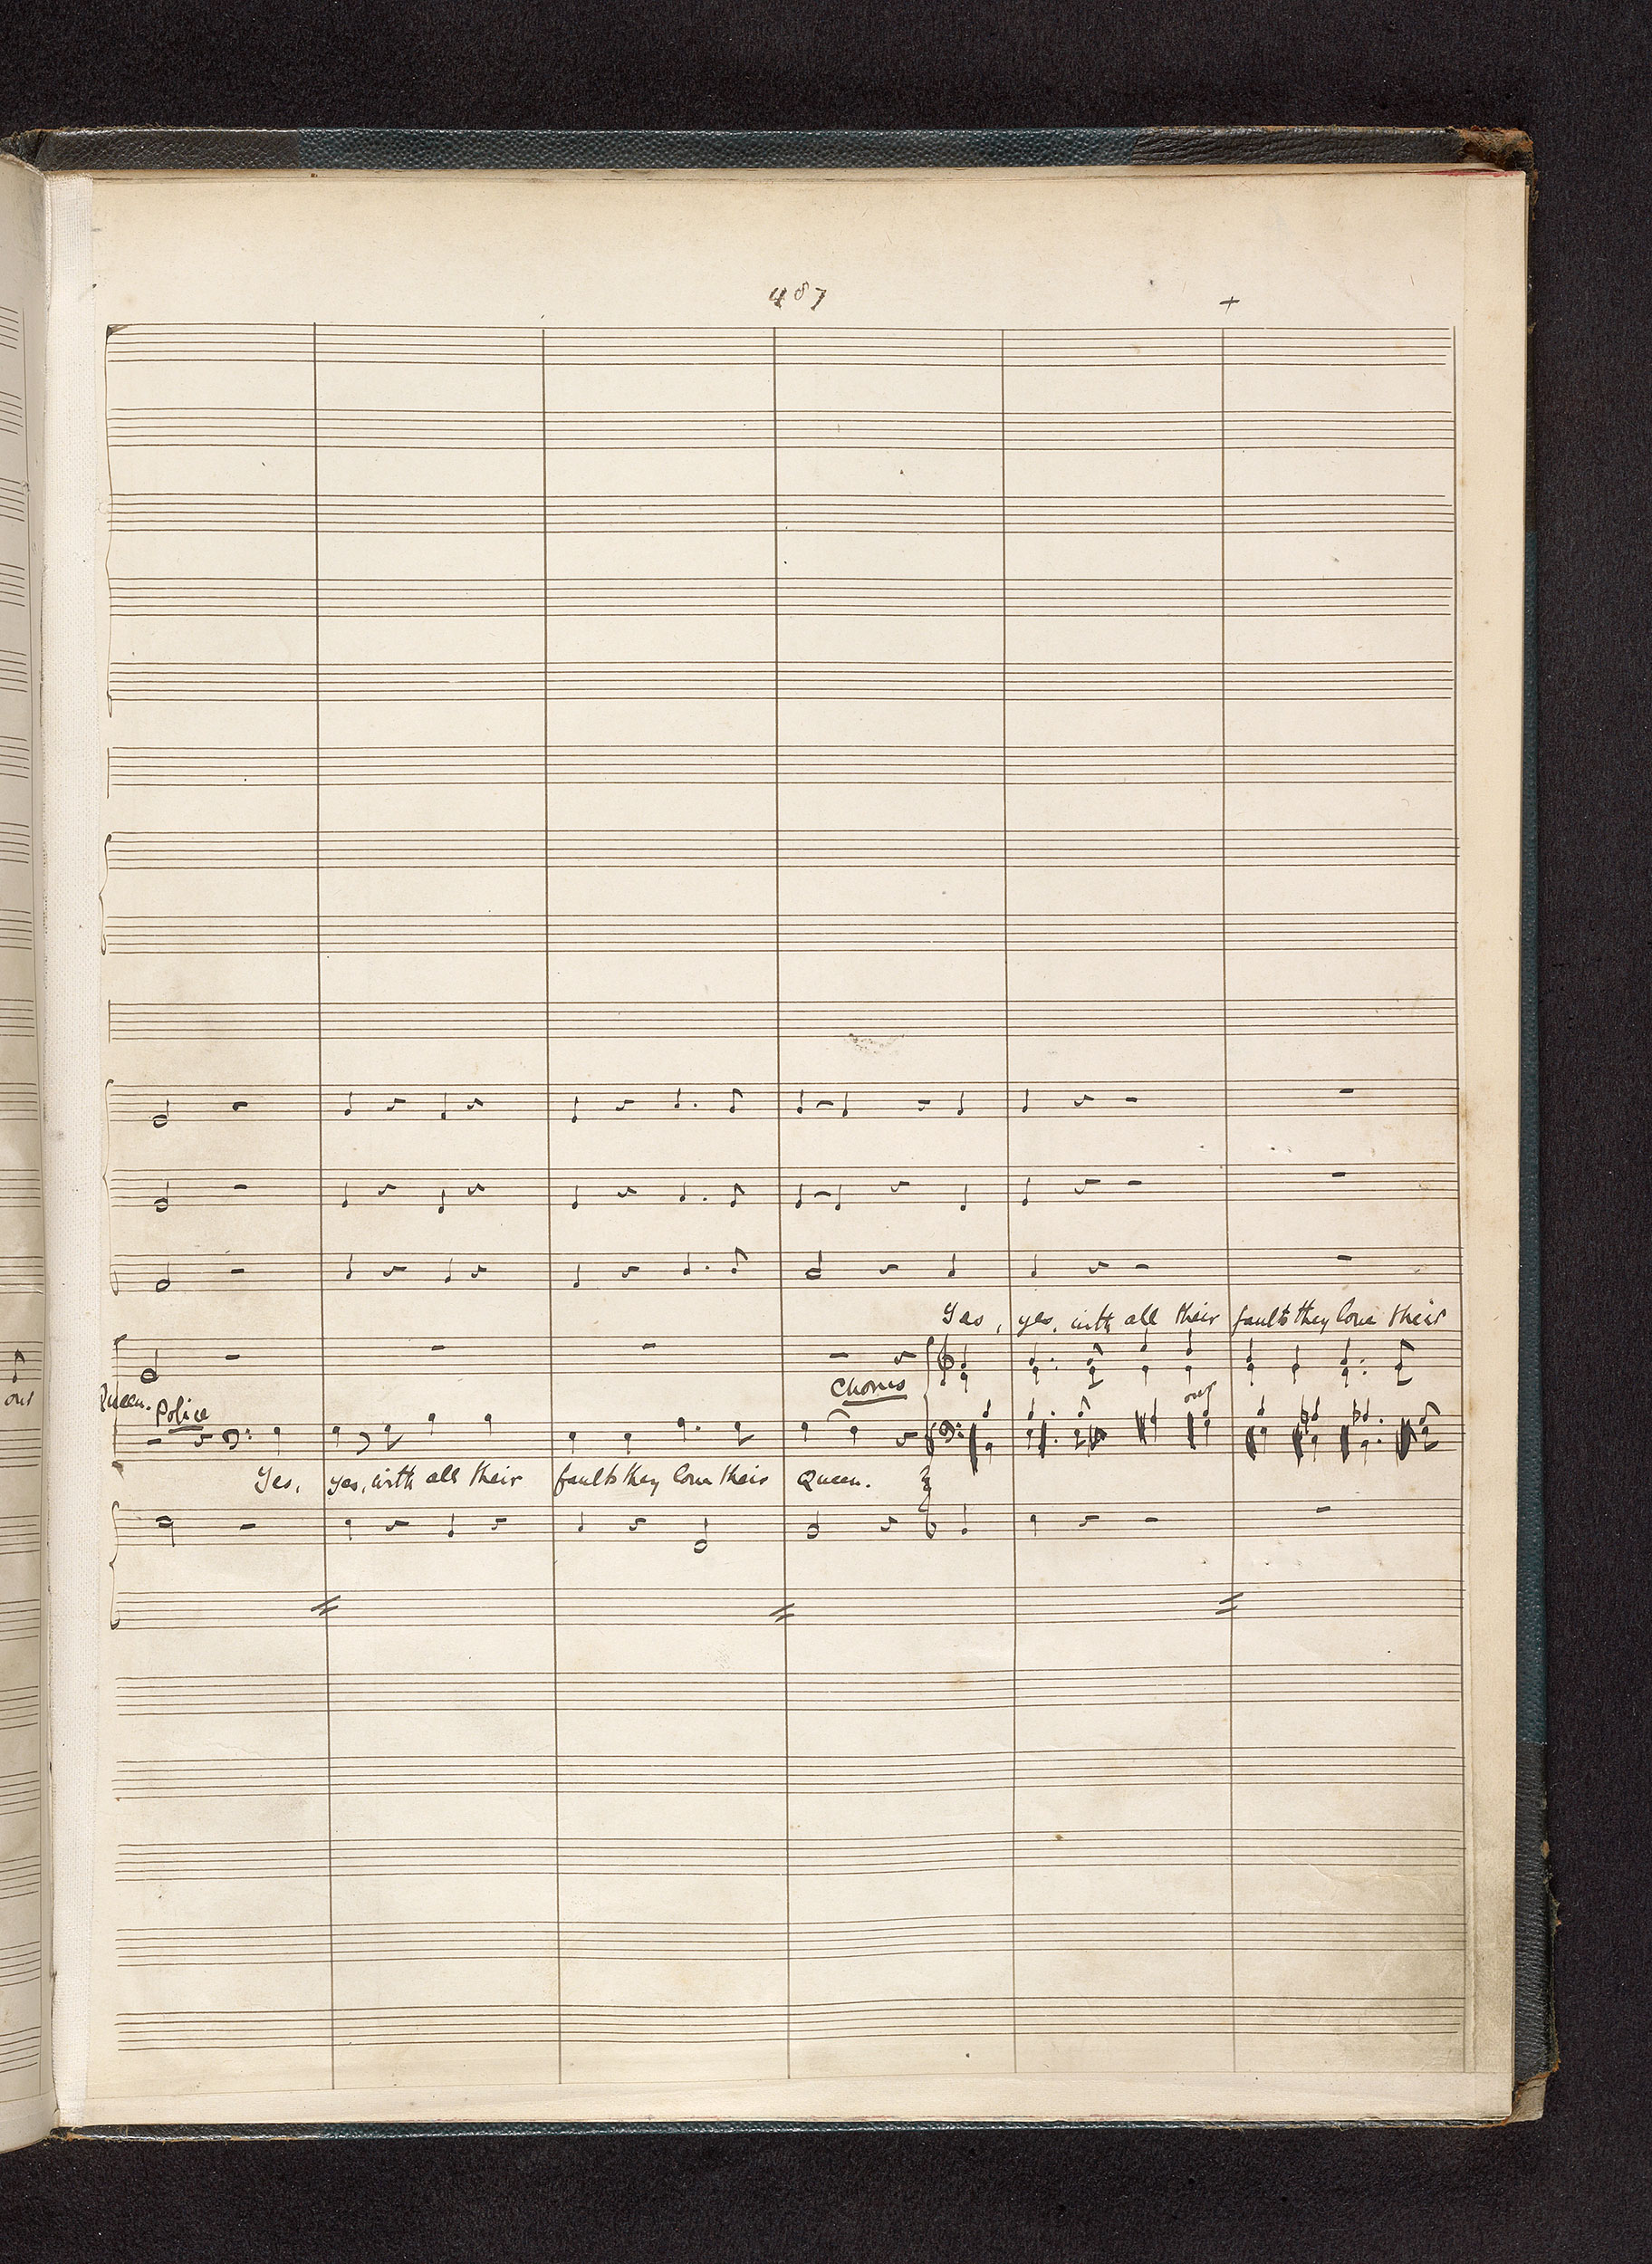 487
+
Yes, yes, with all their faults they love their
our
Queen.
Police
Chorus
our
Yes, yes, with all their faults they love their Queen.